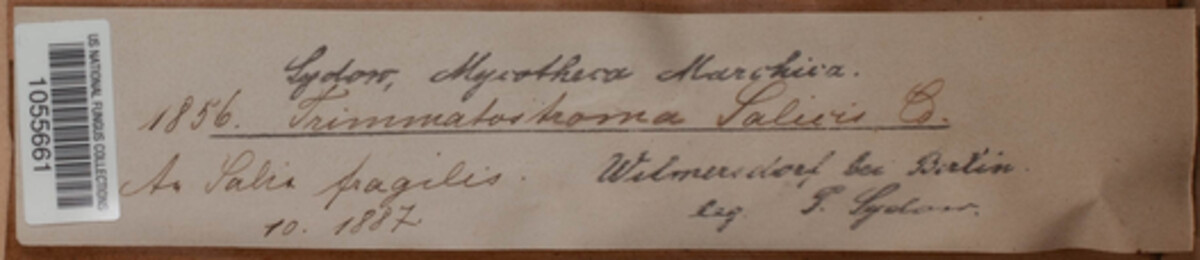 US NATIONAL FUNGUS COLLECTIONS
1055661
Sydow, Mycotheca Marchica.
1856. Trimmatostroma Salicis Cd.
An Salix fragilis.
10. 1887
Wilmersdorf bei Berlin.
leg. P. Sydow.